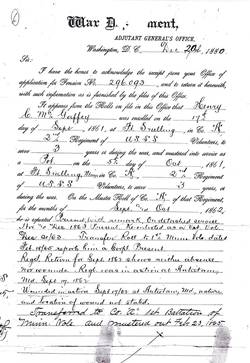 War D   ment,
ADJUTANT GENERAL'S OFFICE,
Washington, D. C. Dec 20th, 1880.
Sir:
I have the honor to acknowledge the receipt from your Office of
application for Pension No. 296093, and to return it herewith,
with such information as is furnished by the files of this Office.
It appears from the Rolls on file in this Office that Henry
C. McGaffey was enrolled on the 17th
day of Sept, 1861, at Ft Snelling, in Co. K,
2nd Regiment of U.S.S.S Volunteers, to
serve 3 years during the war, and mustered into service as
a Pvt on the 5th day of Oct 1861,
at Ft Snelling Minn, in Co. K 2nd Regiment of
U.S.S.S Volunteers, to serve 3 years, or
during the war. On the Muster Roll of Co. K of that Regiment,
for the months of Sept and Oct, 1862,
he is reported Present
Nov to Dec 1863 Present.
Transfer Roll to 1st Minn Vols dated
Feb
Regtl Return for Sept 1862 shows absence
not wounded. Regt. was in action at Antietam,
Md. Sept 17, 1862
Wounded in action Sept 17/62 at Antietam, Md, nature
and location of wound not stated.
Transferred to Co 1st Battalion of
Minn Vols and mustered out Feb 23, 1865